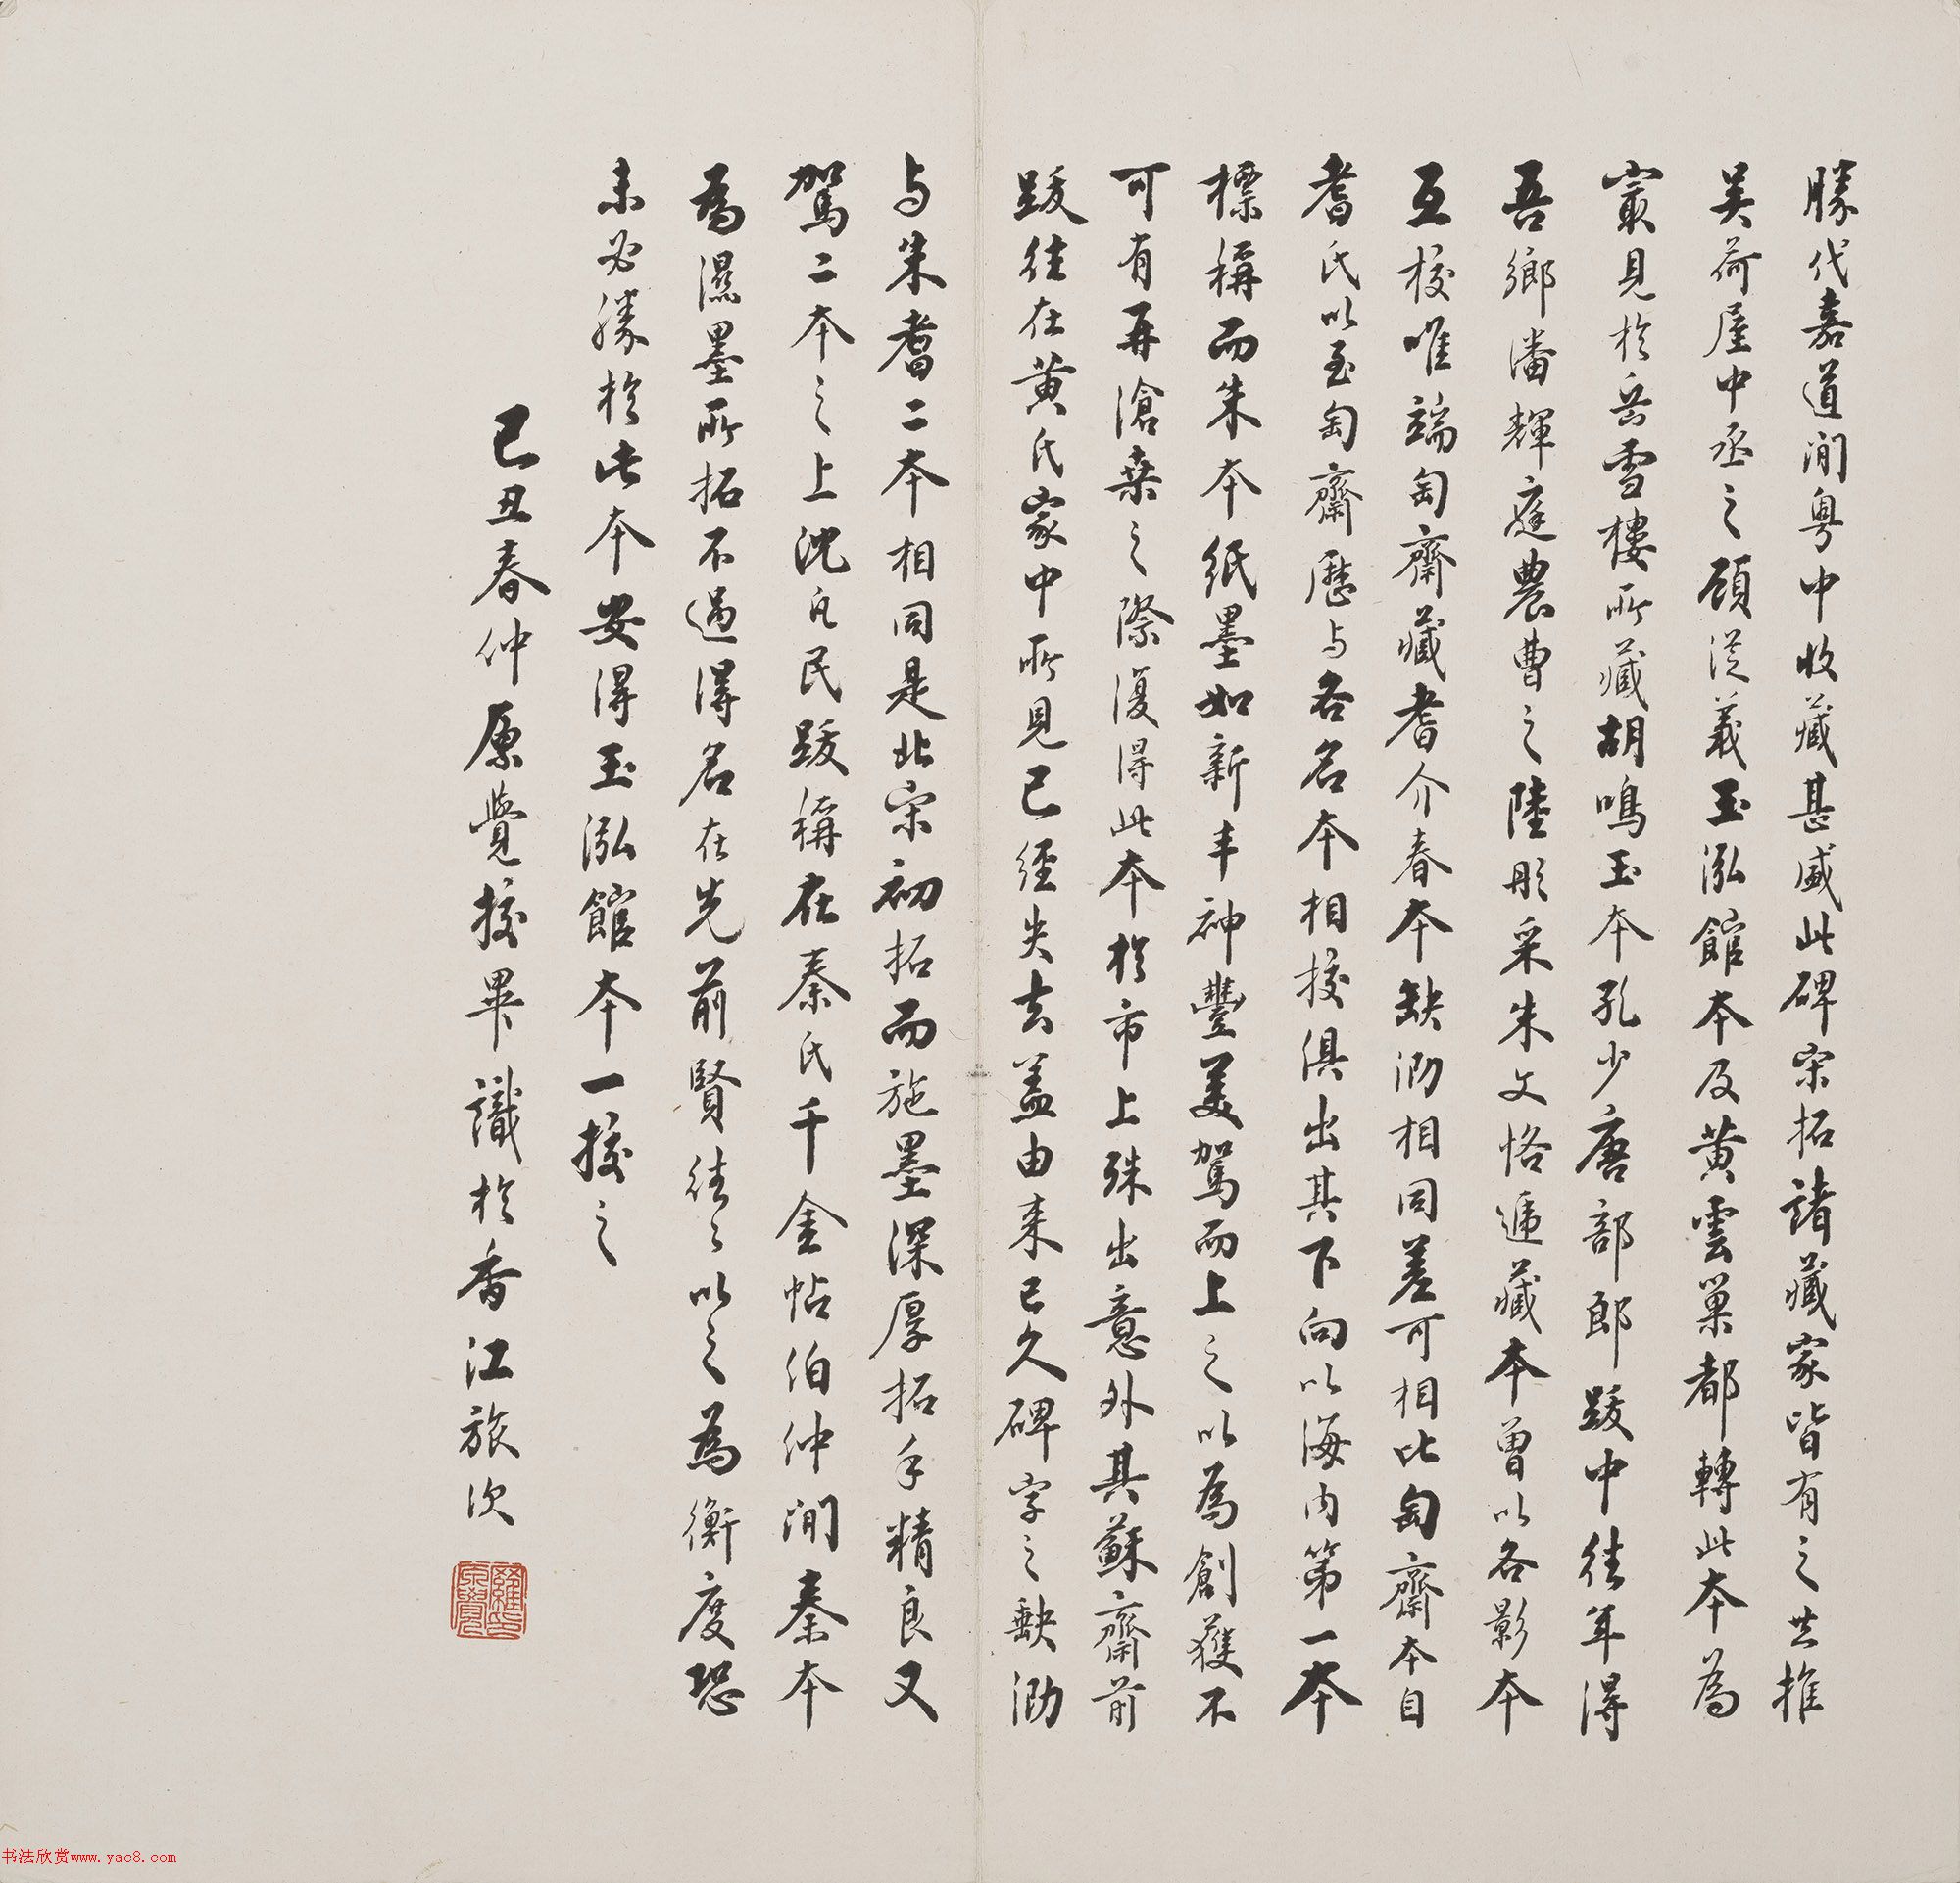 勝代嘉道間粵中收藏甚盛此碑宋拓諸藏家皆有之共推
吴荷屋中丞之顧從義玉泓館本及黄雲巢都轉此本為
冣見於岳雪樓所藏胡鳴玉本孔少唐部郎跋中往年得
吾鄉潘輝庭農曹之陸彤采朱文恪遞藏本曾以各影本
互校唯端匋齋藏耆介春本缺泐相同差可相比匋齋本自
耆氏以至匋齋歷与各名本相校俱出其下向以海内第一本
標稱而朱本紙墨如新丰神豐美駕而上之以為創獲不
可有再滄桑之際復得此本於市上殊出意外其蘇齋前
跋往在黄氏家中所見已經失去盖由来已久碑字之缺泐
与朱耆二本相同是北宋初拓而施墨深厚拓手精良又
駕二本之上沈民跋稱在秦氏千金帖伯仲間秦本
為濕墨所拓不過得名在先前賢往々以之為衡度恐
未必勝於此本安得玉泓館本一挍之
己丑春仲原覺挍畢識於香江旅次
羅原覺
书法欣赏www.yac8.com